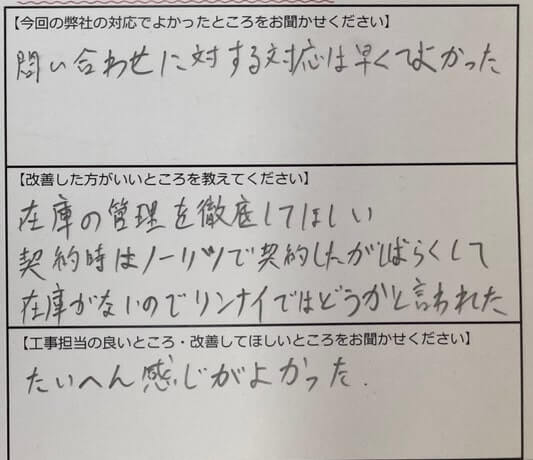 【今回の弊社の対応でよかったところをお聞かせください】
問い合わせに対する対応は早くてよかった
【改善した方がいいところを教えてください】
在庫の管理を徹底してほしい
契約時はノーリツで契約したがしばらくして
在庫がないのでリンナイではどうかと言われた
【工事担当の良いところ・改善してほしいところをお聞かせください】
たいへん感じがよかった.